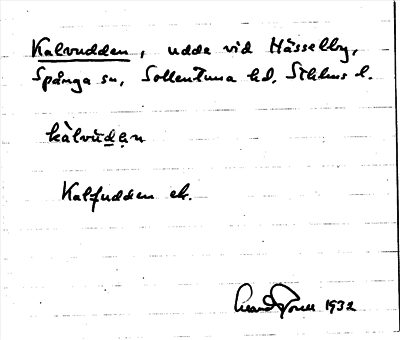 Kalvudden, udde vid Hässelby,
Spånga sn, Sollentuna hd, Sthlms l.
kàlvùdę̣n
Kalfudden ek.
1932